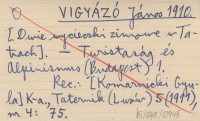 VIGYÁZÓ János 1910.
[Dwie wycieczki zimowe w Ta-
trach]. — Turistaság és
Alpinizmus (Budapest) 1.
Rec.: [Komarnicki Gyu-
la] K-a., Taternik (Lwów) 5 (1911),
nr 4: 75.